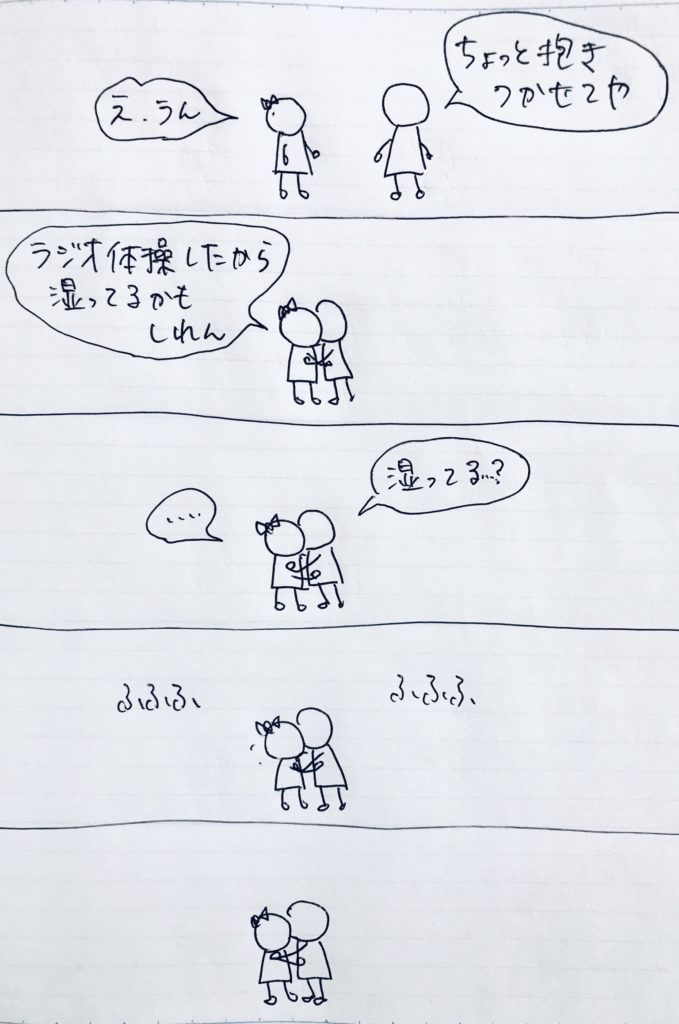 ちょっと抱き
つかせてや
え.うん
ラジオ体操したから
湿ってるかも
しれん
湿ってる…?
....
ふふふ、
ふふふ、